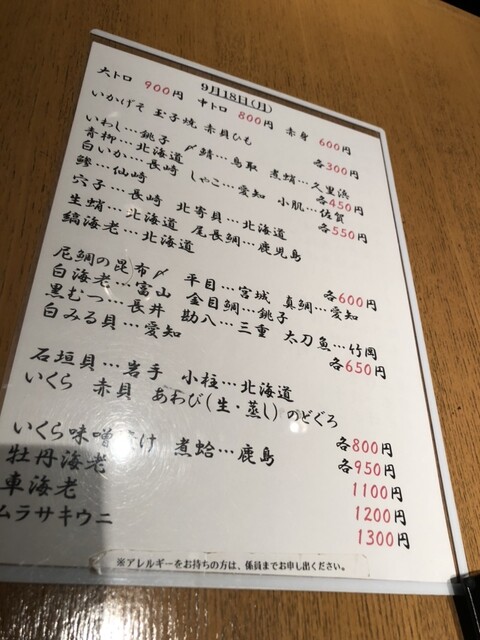 9月18日(月)
大トロ 900円 中トロ 800円 赤身 600円
いかげそ 玉子焼 赤貝ひも 各300円
いわし…銚子 〆鯖…鳥取 煮蛸…久里浜 各450円
青柳…北海道 しゃこ…愛知 小肌…佐賀 各550円
白いか…長崎
鯵…仙崎 北寄貝…北海道
穴子…長崎 尾長鯛…鹿児島
生蛸…北海道
縞海老…北海道
尼鯛の昆布〆 平目…宮城 真鯛…愛知 各600円
白海老…富山 金目鯛…銚子
黒むつ…長井 勘八…三重 太刀魚…竹岡 各650円
白みる貝…愛知
石垣貝…岩手 小柱…北海道 各800円
いくら 赤貝 あわび(生・蒸し) のどぐろ 各950円
いくら味噌 け 煮蛤…鹿島 1100円
牡丹海老 1200円
車海老 1300円
ムラサキウニ
※アレルギーをお持ちの方は、係員までお申し出ください。